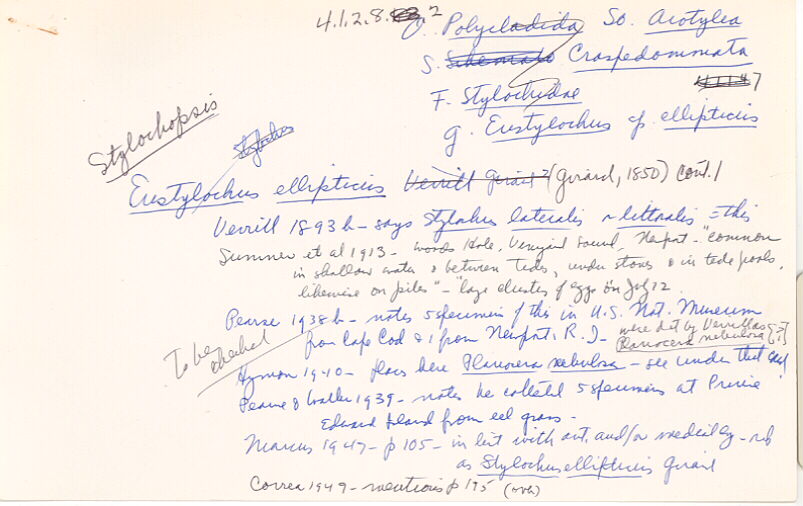 4.1.2.8. 2 O. Polycladida So. Acotylea
S. Schemato Craspedommata
7
F. Stylochidae
g. Eustylochus sp. ellipticus
Stylochopsis
Stylochus
Eustylochus ellipticus Verrill Girard (Girard, 1850) Cont. 1
Verrill 1893 b - says Stylochus lateralis & littoralis = this
Sumner et al 1913 - Woods Hole, Vineyard Sound, Newport - "common
in shallow water & between Tides, under stones & in tide pools,
likewise on piles" - "large cluster of eggs on July 12.
Pearse 1938 b - notes 5 specimens of this in U.S. Nat. Museum
from Cape Cod & 1 from Newport, R.I. - were det by Verrill as
Planocera nebulosa
To be checked
Hyman 1940 - places here Planocera nebulosa - see under that card
Pearse & Walker 1939 - notes he collected 5 specimens at Prince
Edward Island from eel grass -
Marcus 1947 - p 105 - in list with ant. and/or medial
as Stylochus ellipticus Girard
Correa 1949 - mentions p 195